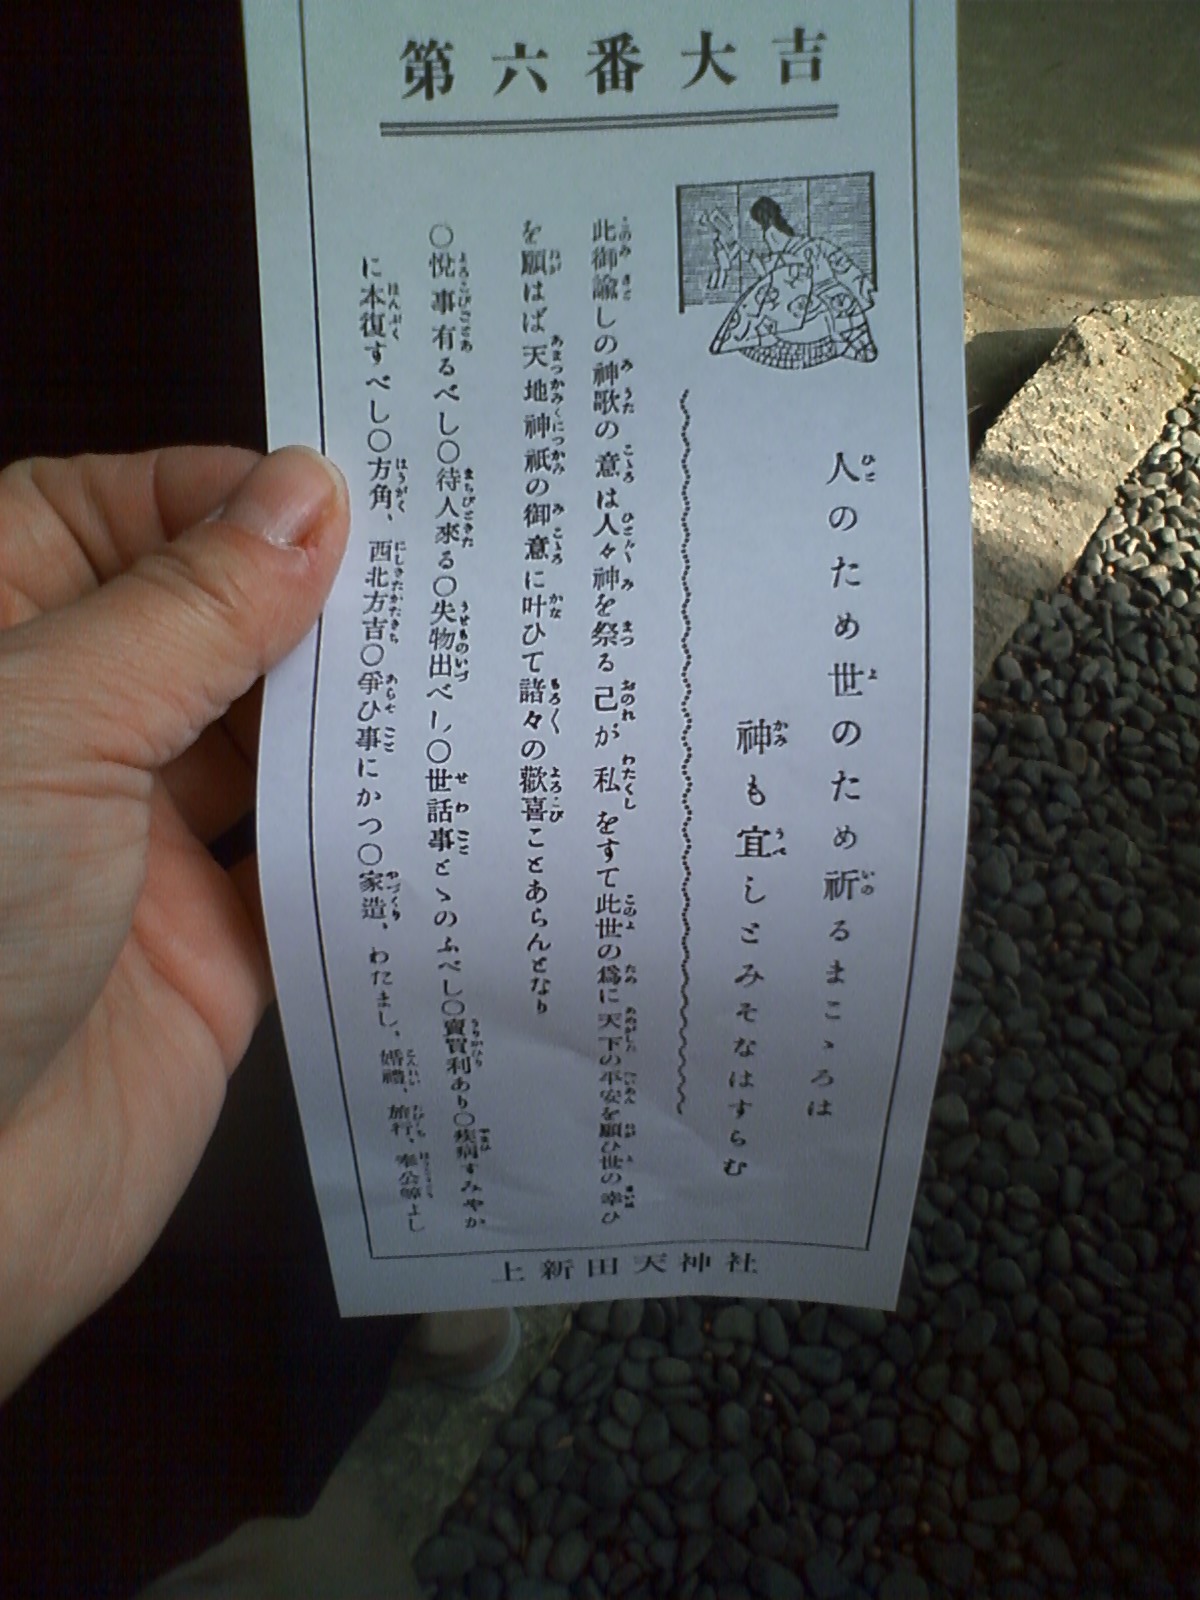 第六番大吉
人のため世のため祈るまこゝろは
神も宜しとみそなはすらむ
此御諭しの神歌の意は人々神を祭る己が私をすて此世の為に天下の平安を願ひ世の幸ひ
を願はば天地神祇の御意に叶ひて諸々の歡喜ことあらんとなり
○悅事有るべし○待人來る○失物出べし○世話事とゝのふべし○賣買利あり○疾病すみやか
に本復すべし○方角、西北方吉○爭ひ事にかつ○家造、わたまし、婚禮、旅行、奉公等よし
上新田天神社